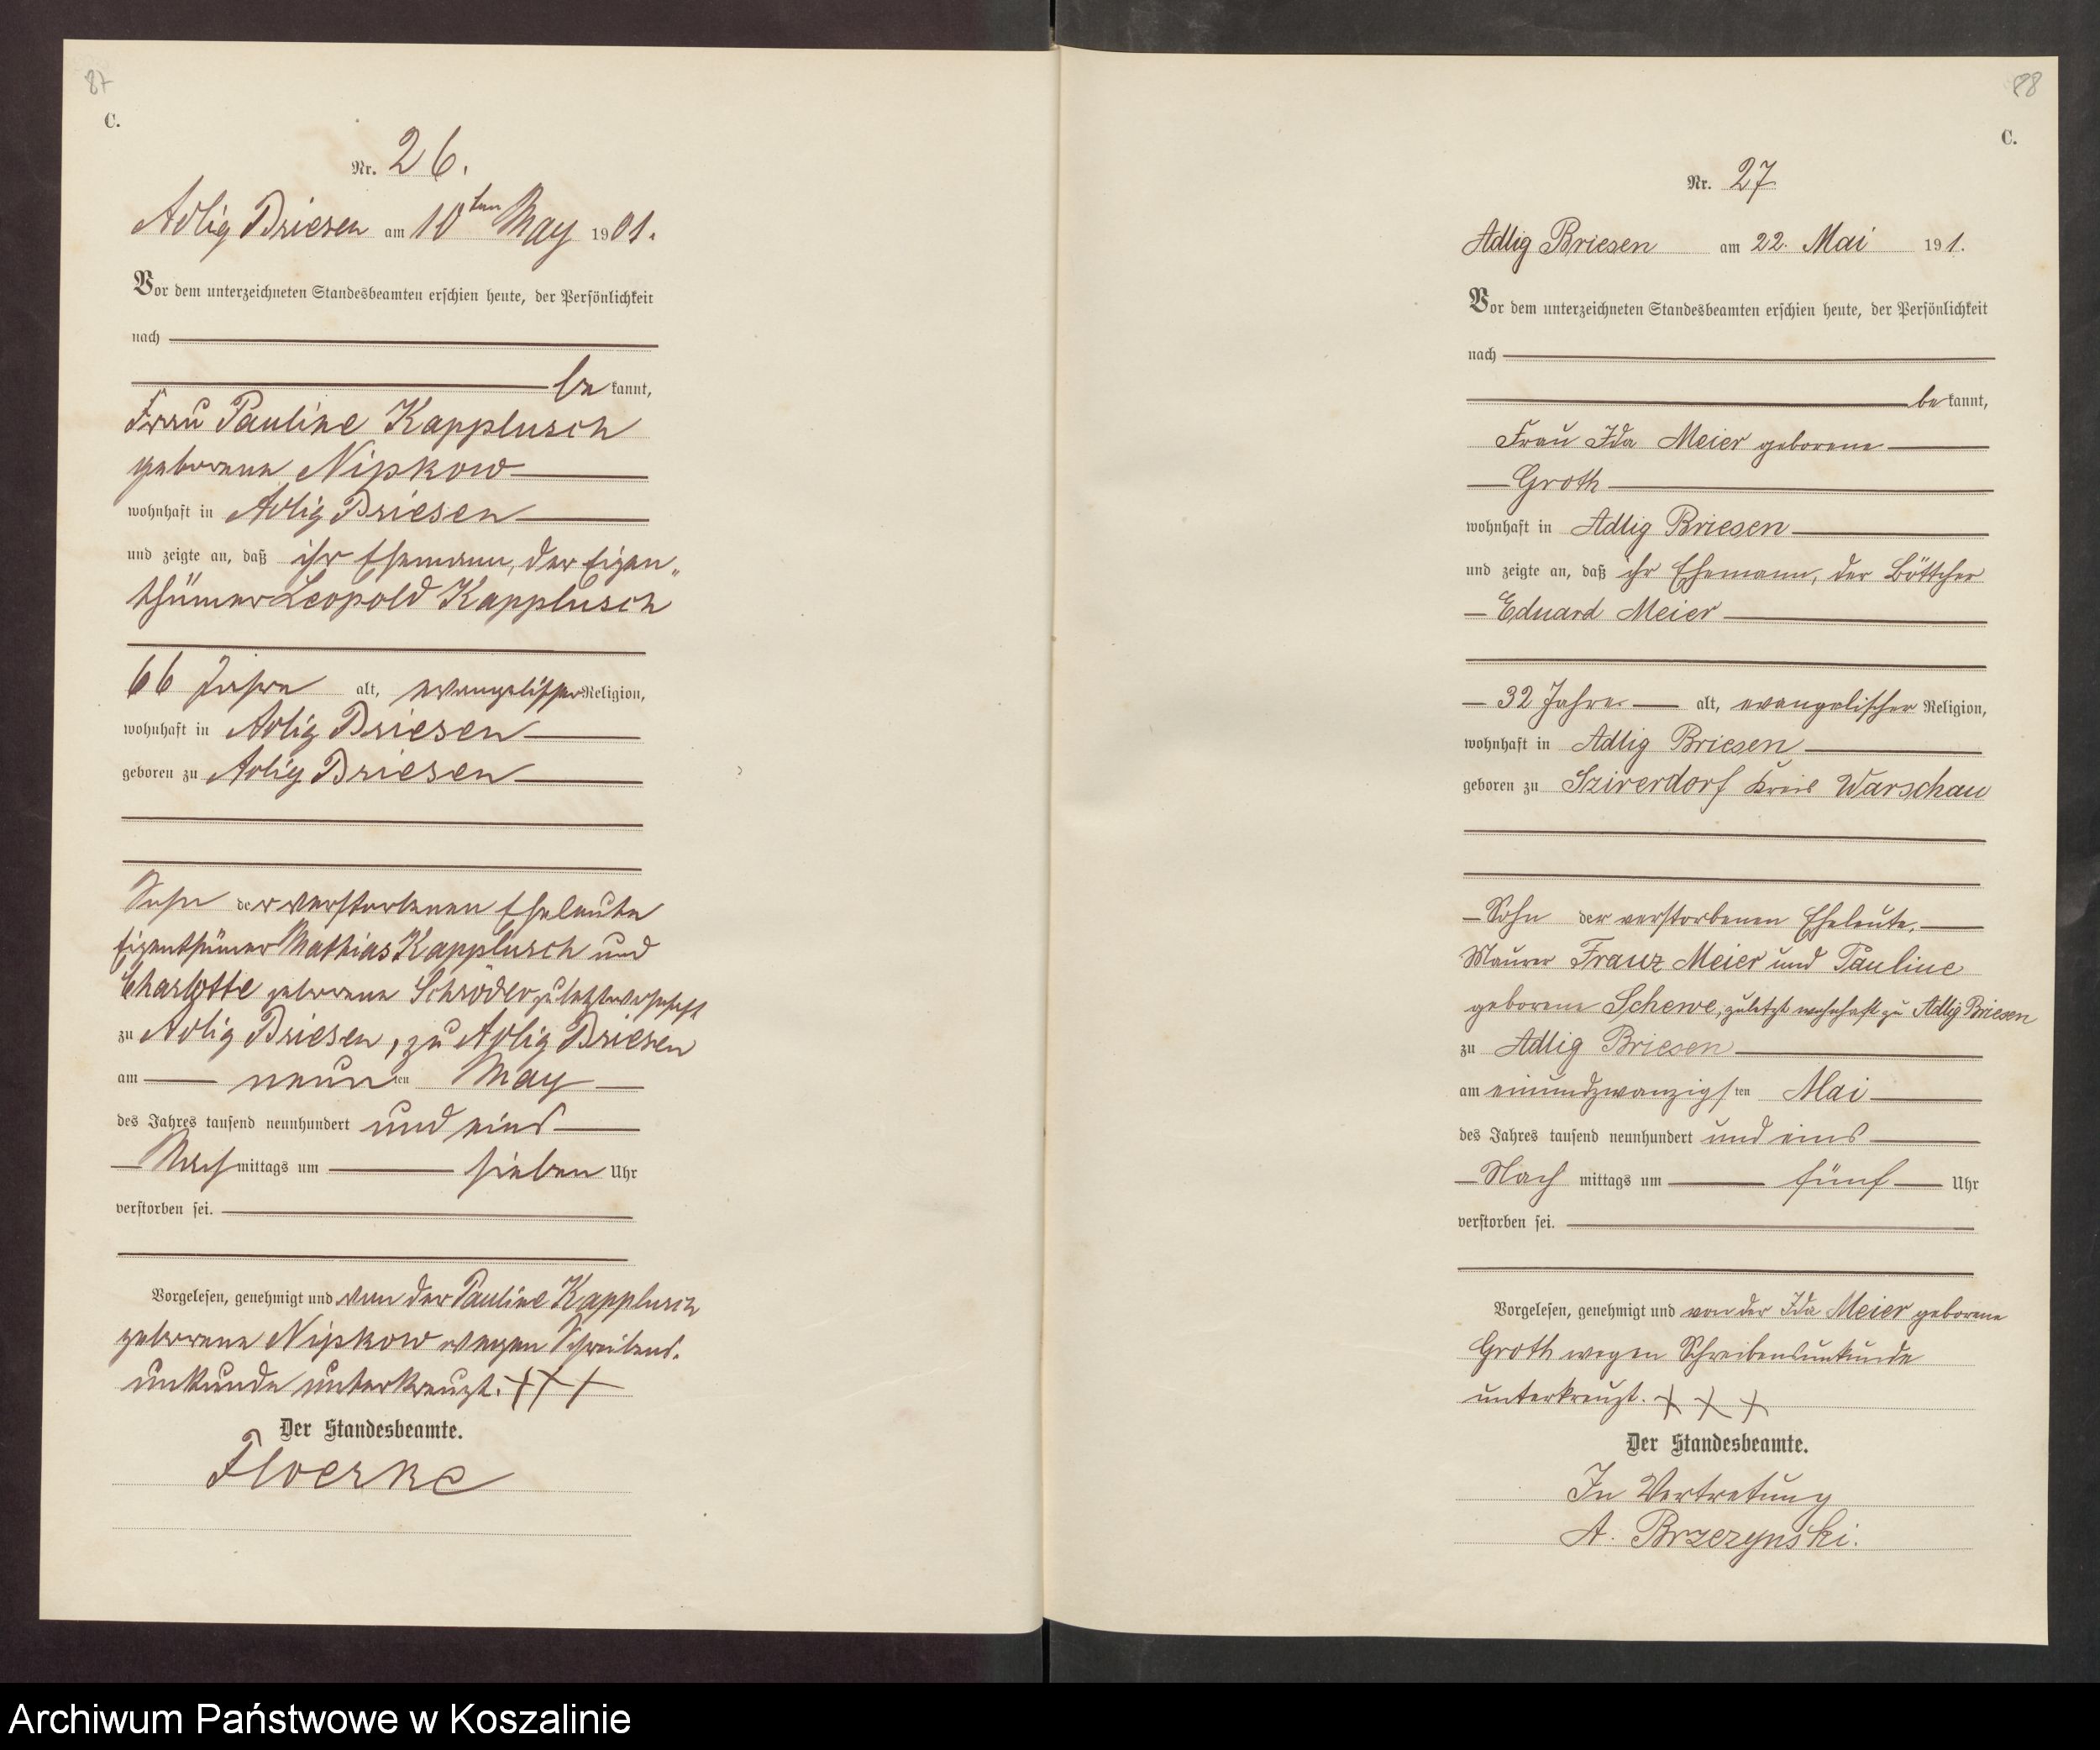 87
C.
Nr. 26.
Adlig Briesen am 10ten May 1901.
Vor dem unterzeichneten Standesbeamten erschien heute, der Persönlichkeit
nach
be kannt,
Frau Pauline Kapplusch
geborene Nipkow
wohnhaft in Adlig Briesen
und zeigte an, daß ihr Ehemann, der Eigen„
thümer Leopold Kapplusch
66 Jahre alt, evangelischer Religion,
wohnhaft in Adlig Briesen
geboren zu Adlig Briesen
Sohn der verstorbenen Eheleute
Eigenthümer Mathias Kapplusch und
Charlotte geborene Schröder zuletzt wohnhaft
zu Adlig Briesen, zu Adlig Briesen
am neun ten May
des Jahres tausend neunhundert und eins
Nach mittags um sieben Uhr
verstorben sei.
Vorgelesen, genehmigt und von der Pauline Kapplusch
geborene Nipkow wegen Schreibens-
unkunde unterkreuzt. +++
Der Standesbeamte.
Floerke
88
C.
Nr. 27
Adlig Briesen am 22. Mai 191.
Vor dem unterzeichneten Standesbeamten erschien heute, der Persönlichkeit
nach
be kannt,
Frau Ida Meier geborene
Groth
wohnhaft in Adlig Briesen
und zeigte an, daß ihr Ehemann, der Böttcher
Eduard Meier
32 Jahre alt, evangelischer Religion,
wohnhaft in Adlig Briesen
geboren zu Szirerdorf Kreis Warschau
Sohn der verstorbenen Eheleute,
Maurer Franz Meier und Pauline
geborene Schewe, zuletzt wohnhaft zu Adlig Briesen
zu Adlig Briesen
am einundzwanzigs ten Mai
des Jahres tausend neunhundert und eins
Nach mittags um fünf Uhr
verstorben sei.
Vorgelesen, genehmigt und von der Ida Meier geborene
Groth wegen Schreibensunkunde
unterkreuzt. + + +
Der Standesbeamte.
In Vertretung
A. Brzezynski.
Archiwum Państwowe w Koszalinie